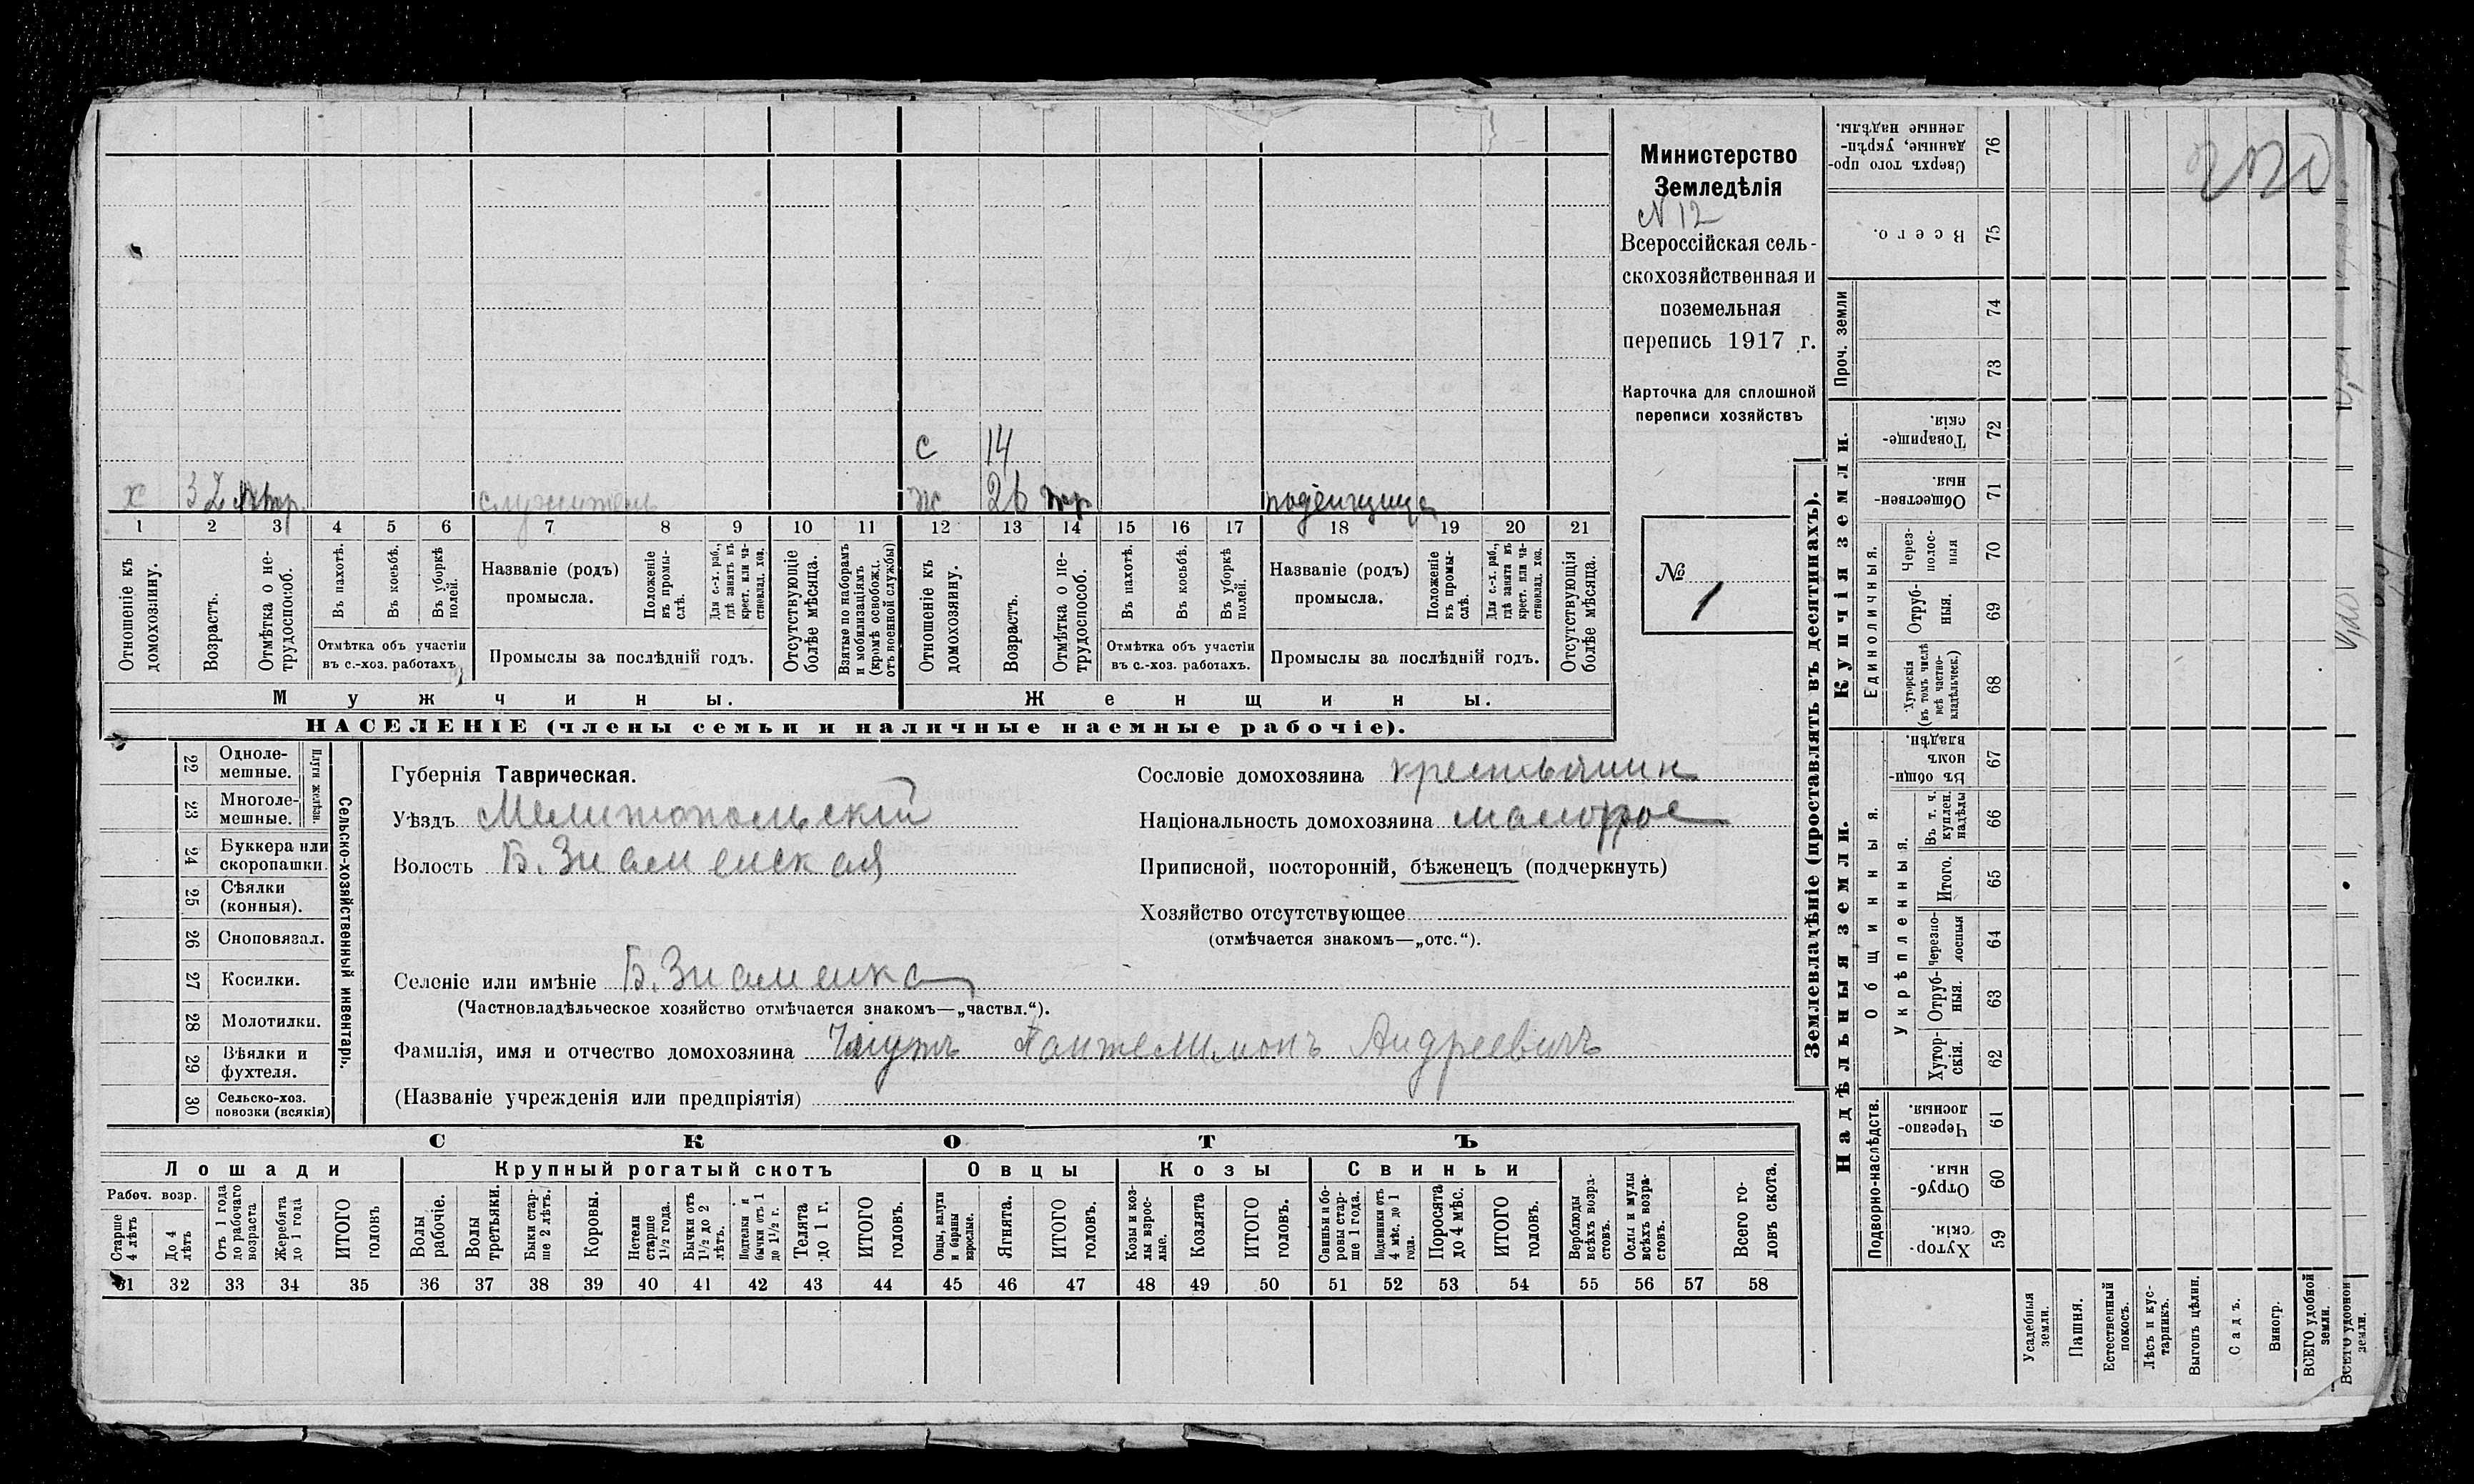 Министерство
Земледѣлія
N 12
Всероссійская сель-
скохозяйственная и
поземельная
перепись 1917 г.
Карточка для сплошной
переписи хозяйствъ
№ 1
с 14
х 32 служитель ж 26 тр поденщица
1 2 3 4 5 6 7 8 9 10 11 12 13 14 15 16 17 18 19 20 21
Отношеніе къ домохозяину.
Возрастъ.
Отмѣтка о не-трудоспособ.
Въ пахотѣ.
Въ косьбѣ.
Въ уборкѣ полей.
Отмѣтка объ участіи
въ с.-хоз. работахъ.
Названіе (родъ)
промысла.
Положеніе въ промы-слѣ.
Для с.-х. раб., гдѣ занятъ въ крест. или ча-стновлад. хоз.
Промыслы за послѣдній годъ.
Отсутствующіе болѣе мѣсяца.
Взятые по наборамъ и мобилизаціямъ (кромѣ освобожд. отъ военной службы)
Отношеніе къ домохозяину.
Возрастъ.
Отмѣтка о не-трудоспособ.
Въ пахотѣ.
Въ косьбѣ.
Въ уборкѣ полей.
Отмѣтка объ участіи
въ с.-хоз. работахъ.
Названіе (родъ)
промысла.
Положеніе въ промы-слѣ.
Для с.-х. раб., гдѣ занята въ крест. или ча-стновлад. хоз.
Промыслы за послѣдній годъ.
Отсутствующія болѣе мѣсяца.
Мужчины. Женщины.
НАСЕЛЕНІЕ (члены семьи и наличные наемные рабочіе).
Сельско-хозяйственный инвентарь.
Плуги желѣзн.
22 Одноле-мешные.
23 Многоле-мешные.
24 Буккера или скоропашки.
25 Сѣялки (конныя).
26 Сноповязал.
27 Косилки.
28 Молотилки.
29 Вѣялки и фухтеля.
30 Сельско-хоз. повозки (всякія)
Губернія Таврическая.
Уѣздъ Мелитопольскій
Волость Б. Знаменская
Сословіе домохозяина крестьянин
Національность домохозяина малорос
Приписной, посторонній, бѣженецъ (подчеркнуть)
Хозяйство отсутствующее
(отмѣчается знакомъ—„отс.“).
Селеніе или имѣніе Б. Знаменка
(Частновладѣльческое хозяйство отмѣчается знакомъ—„частвл.“).
Фамилія, имя и отчество домохозяина Пантелимонъ Андреевичъ
(Названіе учрежденія или предпріятія)
СКОТЪ
Лошади Крупный рогатый скотъ Овцы Козы Свиньи
Рабоч. возр.
Старше 4 лѣтъ
До 4 лѣтъ
Отъ 1 года до рабочаго возраста
Жеребята до 1 года
ИТОГО головъ
Волы рабочіе.
Волы третьяки.
Быки стар-ше 2 лѣтъ.
Коровы.
Нетели старше 1½ года.
Бычки отъ 1½ до 2 лѣтъ.
Подтелки и бычки отъ 1 до 1½ г.
Телята до 1 г.
ИТОГО головъ.
Овцы, валухи и бараны взрослые.
Ягнята.
ИТОГО головъ.
Козы и коз-лы взрос-лые.
Козлята
ИТОГО головъ.
Свиньи и бо-ровы стар-ше 1 года.
Подсвинки отъ 4 мѣс. до 1 года.
Поросята до 4 мѣс.
ИТОГО головъ.
Верблюды всѣхъ возра-стовъ.
Ослы и мулы всѣхъ возра-стовъ.
Всего го-ловъ скота.
31 32 33 34 35 36 37 38 39 40 41 42 43 44 45 46 47 48 49 50 51 52 53 54 55 56 57 58
Землевладѣніе (проставлять въ десятинахъ).
Купчія земли.
Надѣльныя земли.
Сверхъ того про-данные, укрѣп-ленные надѣлы. 76
Всего. 75
Проч. земли 74
73
Товарище-скія. 72
Обществен-ныя. 71
Единоличныя.
Через-полос-ныя 70
Отруб-ныя. 69
Хуторскія (въ томъ числѣ всѣ частно-владѣльческ.) 68
Общинныя.
Въ общин-номъ владѣн. 67
Укрѣпленныя.
Въ т. ч. куплен. надѣлы 66
Итого. 65
Черезпо-лосныя 64
Отруб-ныя. 63
Хутор-скія. 62
Подворно-наслѣдств.
Черезпо-лосныя. 61
Отруб-ныя. 60
Хутор-скія. 59
Усадебныя земли.
Пашня.
Естественный покосъ.
Лѣсъ и кус-тарникъ.
Выгонъ цѣлин.
Садъ.
Виногр.
ВСЕГО удобной земли.
ВСЕГО удобной земли.